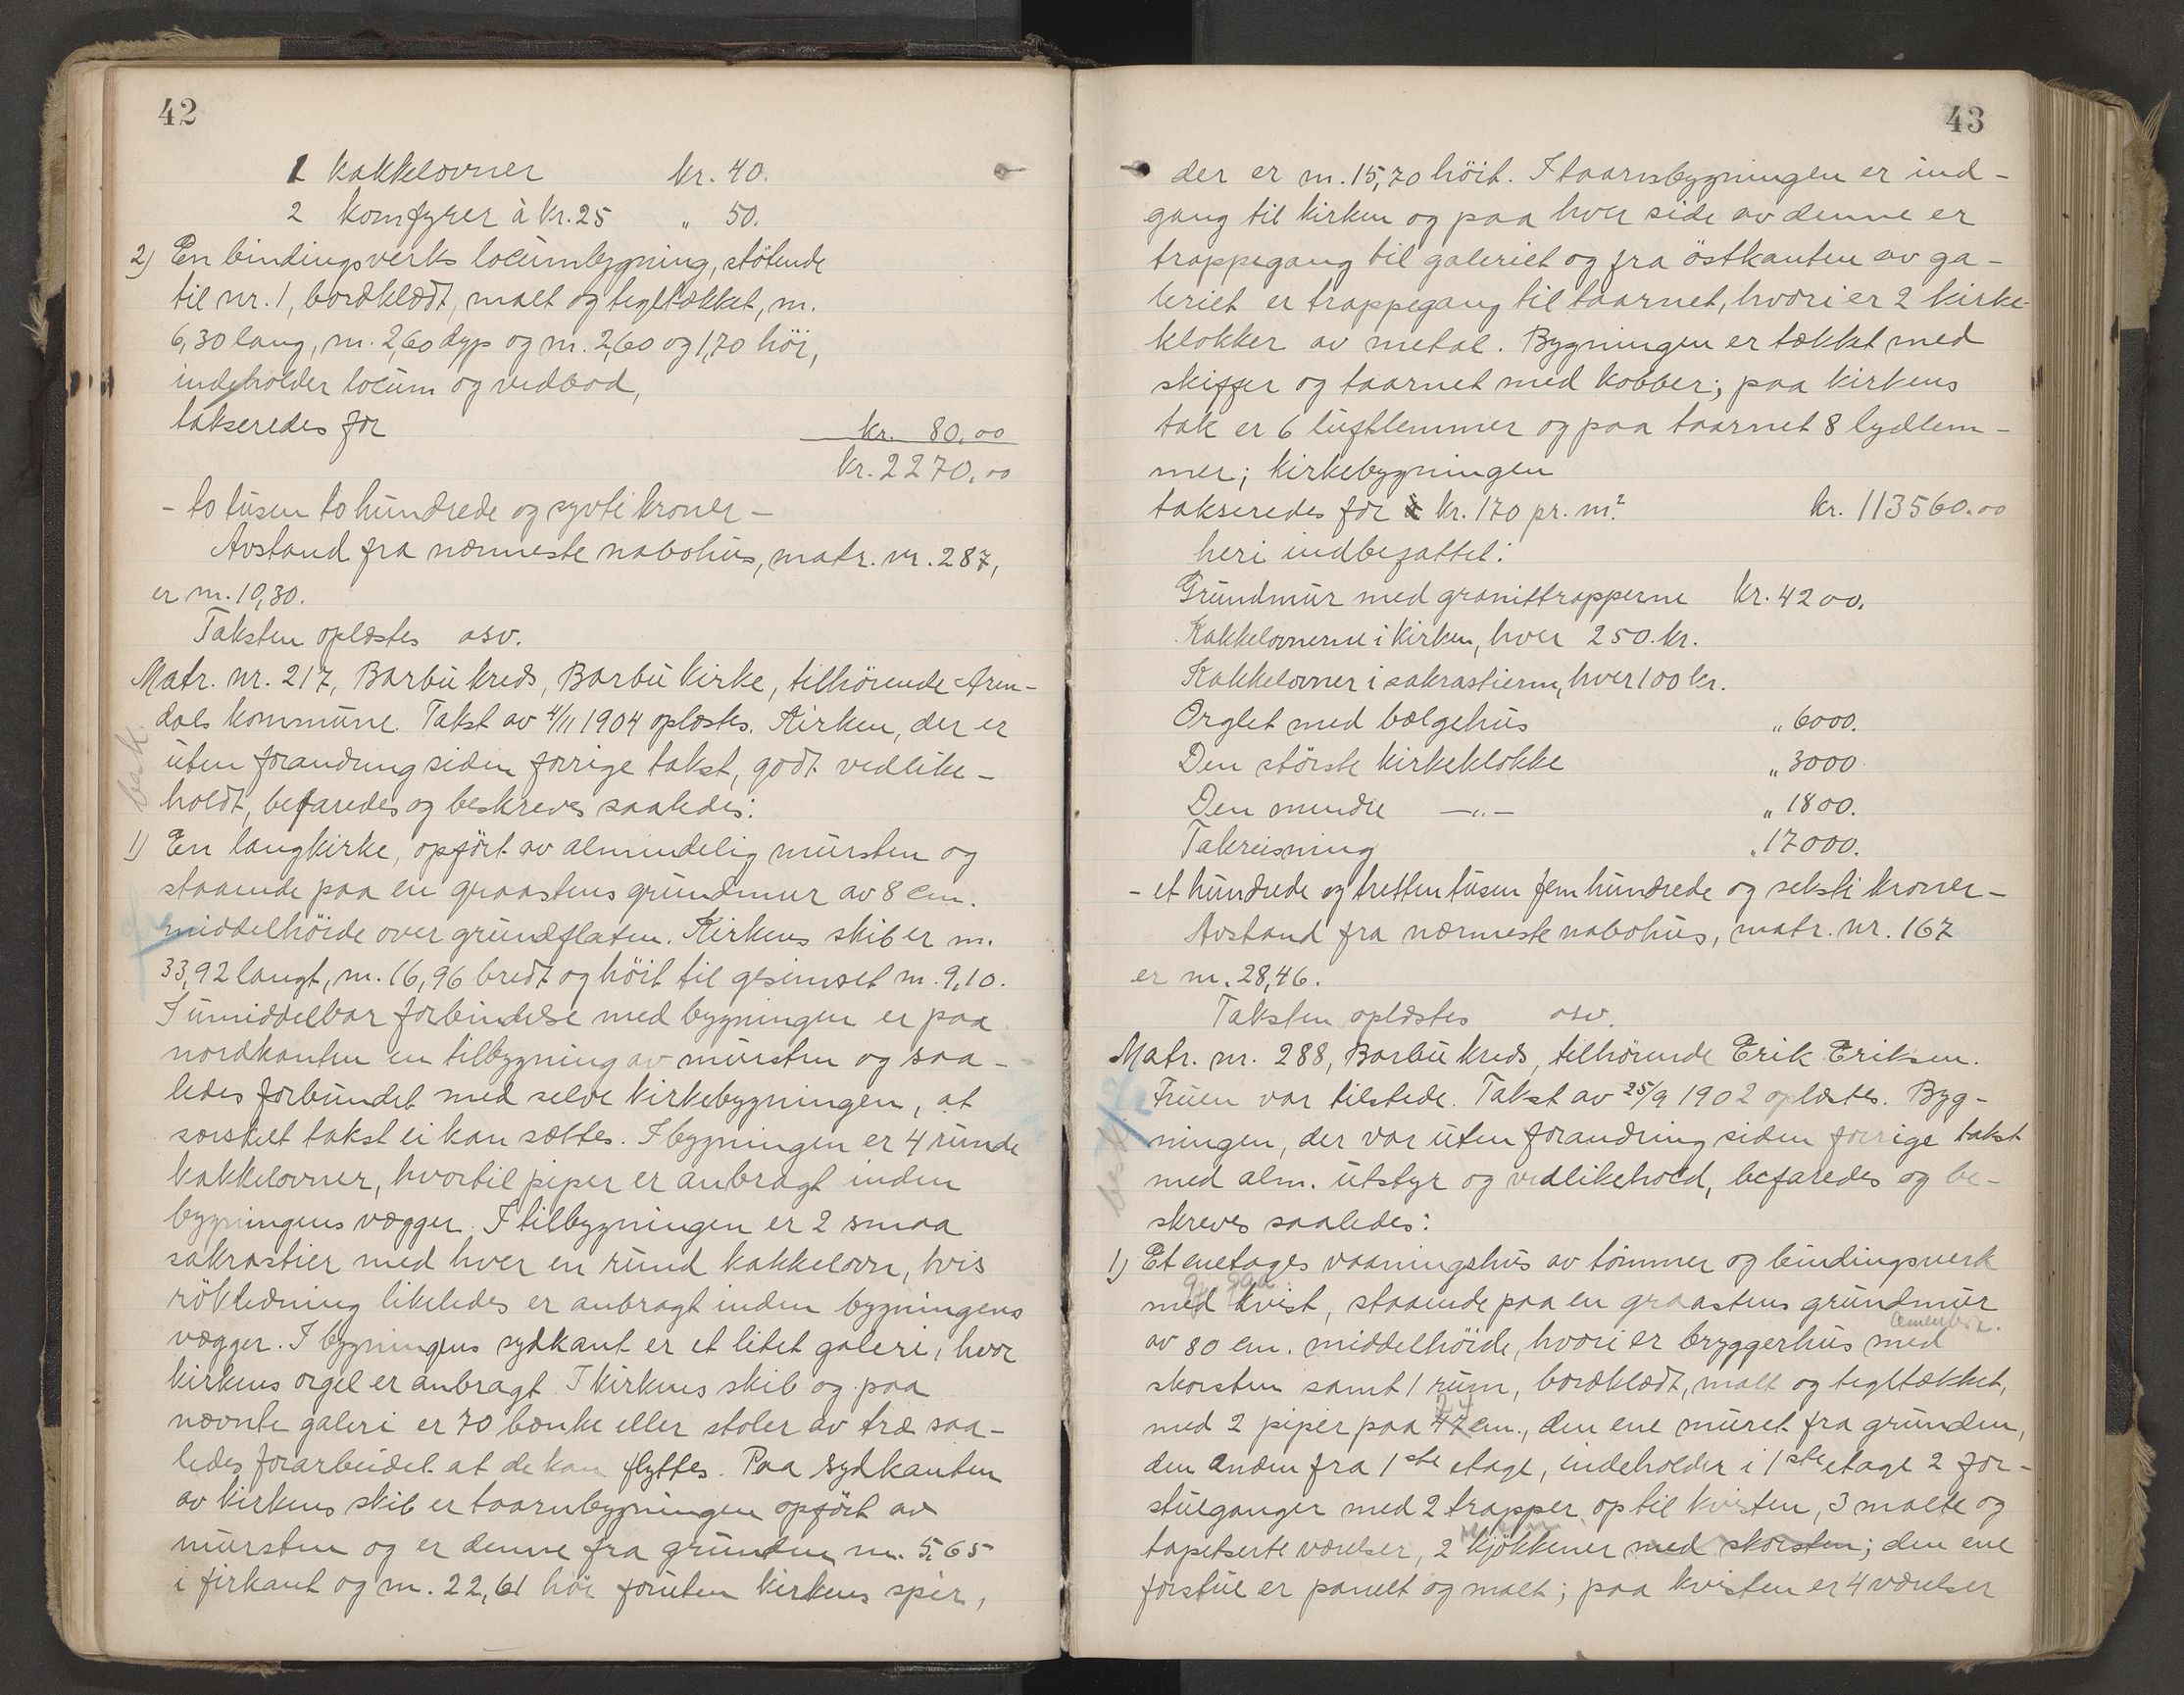 42
1 kakkelovner kr. 40.
2 komfyrer à kr. 25 " 50.
2) En bindingsverks locumbygning, stötende
til nr. 1, bordklædt, malt og tegltækket, m.
6,30 lang, m. 2,60 dyp og m. 2,60 og 1,70 höi,
indeholder locum og vedbod,
takseredes for kr. 80.00
kr. 2270.00
- to tusen to hundrede og sytti kroner -
Avstand fra nærmeste nabohus, matr. nr. 287,
er m. 10,30.
Taksten oplæstes osv.
Matr. nr. 217, Barbu kreds, Barbu kirke, tilhörende Aren-
dals kommune. Takst av 4/11 1904 oplæstes. Kirken, der er
besk.
uten forandring siden forrige takst, godt vedlike-
holdt, befaredes og beskreves saaledes:
1) En langkirke, opfört av almindelig mursten og
staaende paa en graastens grundmur av 8 cm.
middelhöide over grundflaten. Kirkens skib er m.
33,92 langt, m. 16,96 bredt og höit til gesimset m. 9,10.
I umiddelbar forbindelse med bygningen er paa
nordkanten en tilbygning av mursten og saa-
ledes forbundet med selve kirkebygningen, at
særskilt takst ei kan sættes. I bygningen er 4 runde
kakkelovner, hvortil piper er anbragt inden
bygningens vægger. I tilbygningen er 2 smaa
sakrastier med hver en rund kakkelovn, hvis
rökledning likeledes er anbragt inden bygningens
vægger. I bygningens sydkant er et litet galeri, hvor
kirkens orgel er anbragt. I kirkens skib og paa
nævnte galeri er 70 bænke eller stoler av træ saa-
ledes forarbeidet at de kan flyttes. Paa sydkanten
av kirkens skib er taarnbygningen opfört av
mursten og er denne fra grunden m. 5,65
i firkant og m. 22,61 höi foruten kirkens spir,
43
der er m. 15,70 höit. I taarnsbygningen er ind-
gang til kirken og paa hver side av denne er
trappegang til galeriet og fra östkanten av ga-
leriet er trappegang til taarnet, hvori er 2 kirke-
klokker av metal. Bygningen er tækket med
skiffer og taarnet med kobber; paa kirkens
tak er 6 luftlemmer og paa taarnet 8 lydlem-
mer; kirkebygningen
takseredes for à kr. 170 pr. m² kr. 113560.00
heri indbefattet:
Grundmur med granittrapperne kr. 4200.
Kakkelovnerne i kirken, hver 250 kr.
Kakkelovner i sakrastierne, hver 100 kr.
Orglet med bælgehus " 6000.
Den störste kirkeklokke " 3000
Den mindre —"— " 1800.
Takreisning " 17000.
- et hundrede og tretten tusen fem hundrede og seksti kroner -
Avstand fra nærmeste nabohus, matr. nr. 167
er m. 28,46.
Taksten oplæstes osv.
Matr. nr. 288, Barbu kreds, tilhörende Erik Eriksen.
Fruen var tilstede. Takst av 25/9 1902 oplæstes. Byg-
ningen, der var uten forandring siden forrige takst
besk.
med alm. utstyr og vedlikehold, befaredes og be-
skreves saaledes:
1) Et enetages vaaningshus av tömmer og bindingsverk
med kvist, staaende paa en graastens grundmur
av 80 cm. middelhöide, hvori er bryggerhus med
skorsten samt 1 rum, bordklædt, malt og tegltækket,
24
med 2 piper paa 47 cm., den ene muret fra grunden,
den anden fra 1ste etage, indeholder i 1ste etage 2 for-
stueganger med 2 trapper op til kvisten, 3 malte og
tapetserte værelser, 2 kjökkener med skorsten; den ene
forstue er panelt og malt; paa kvisten er 4 værelser